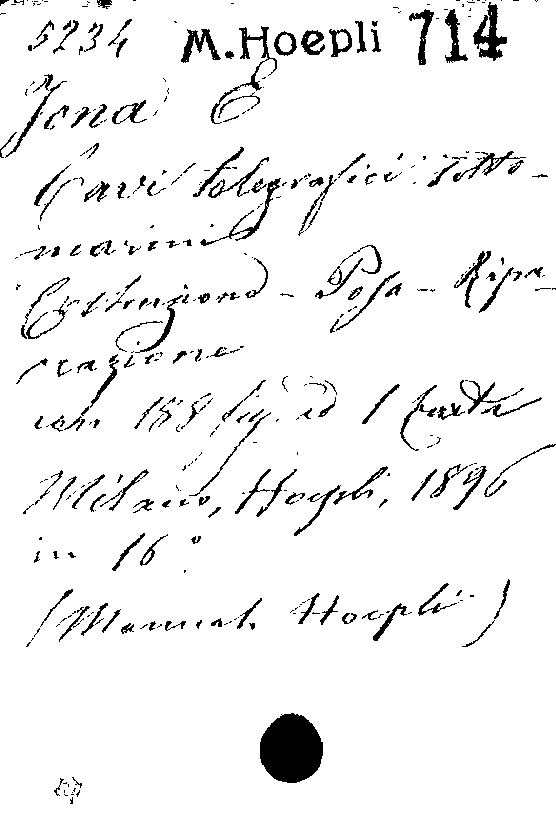 5234 M.Hoepli 714
Jona E
Cavi telegrafici Sotto-
marini
Costruzione - Posa - Ripa-
razione
con 188 fig. ed 1 Carta
Milano, Hoepli, 1896
in 16°
(Manuali Hoepli)